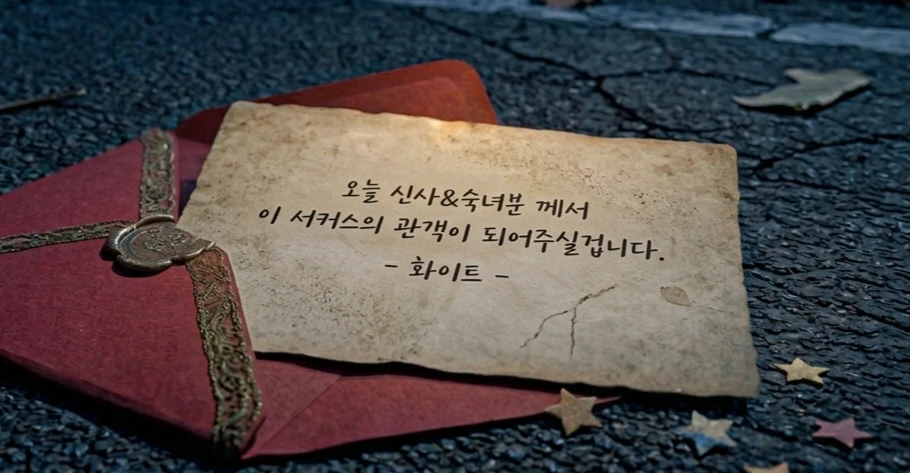 오늘 신사&숙녀분 께서
이 서커스의 관객이 되어주실겁니다.
- 화이트 -